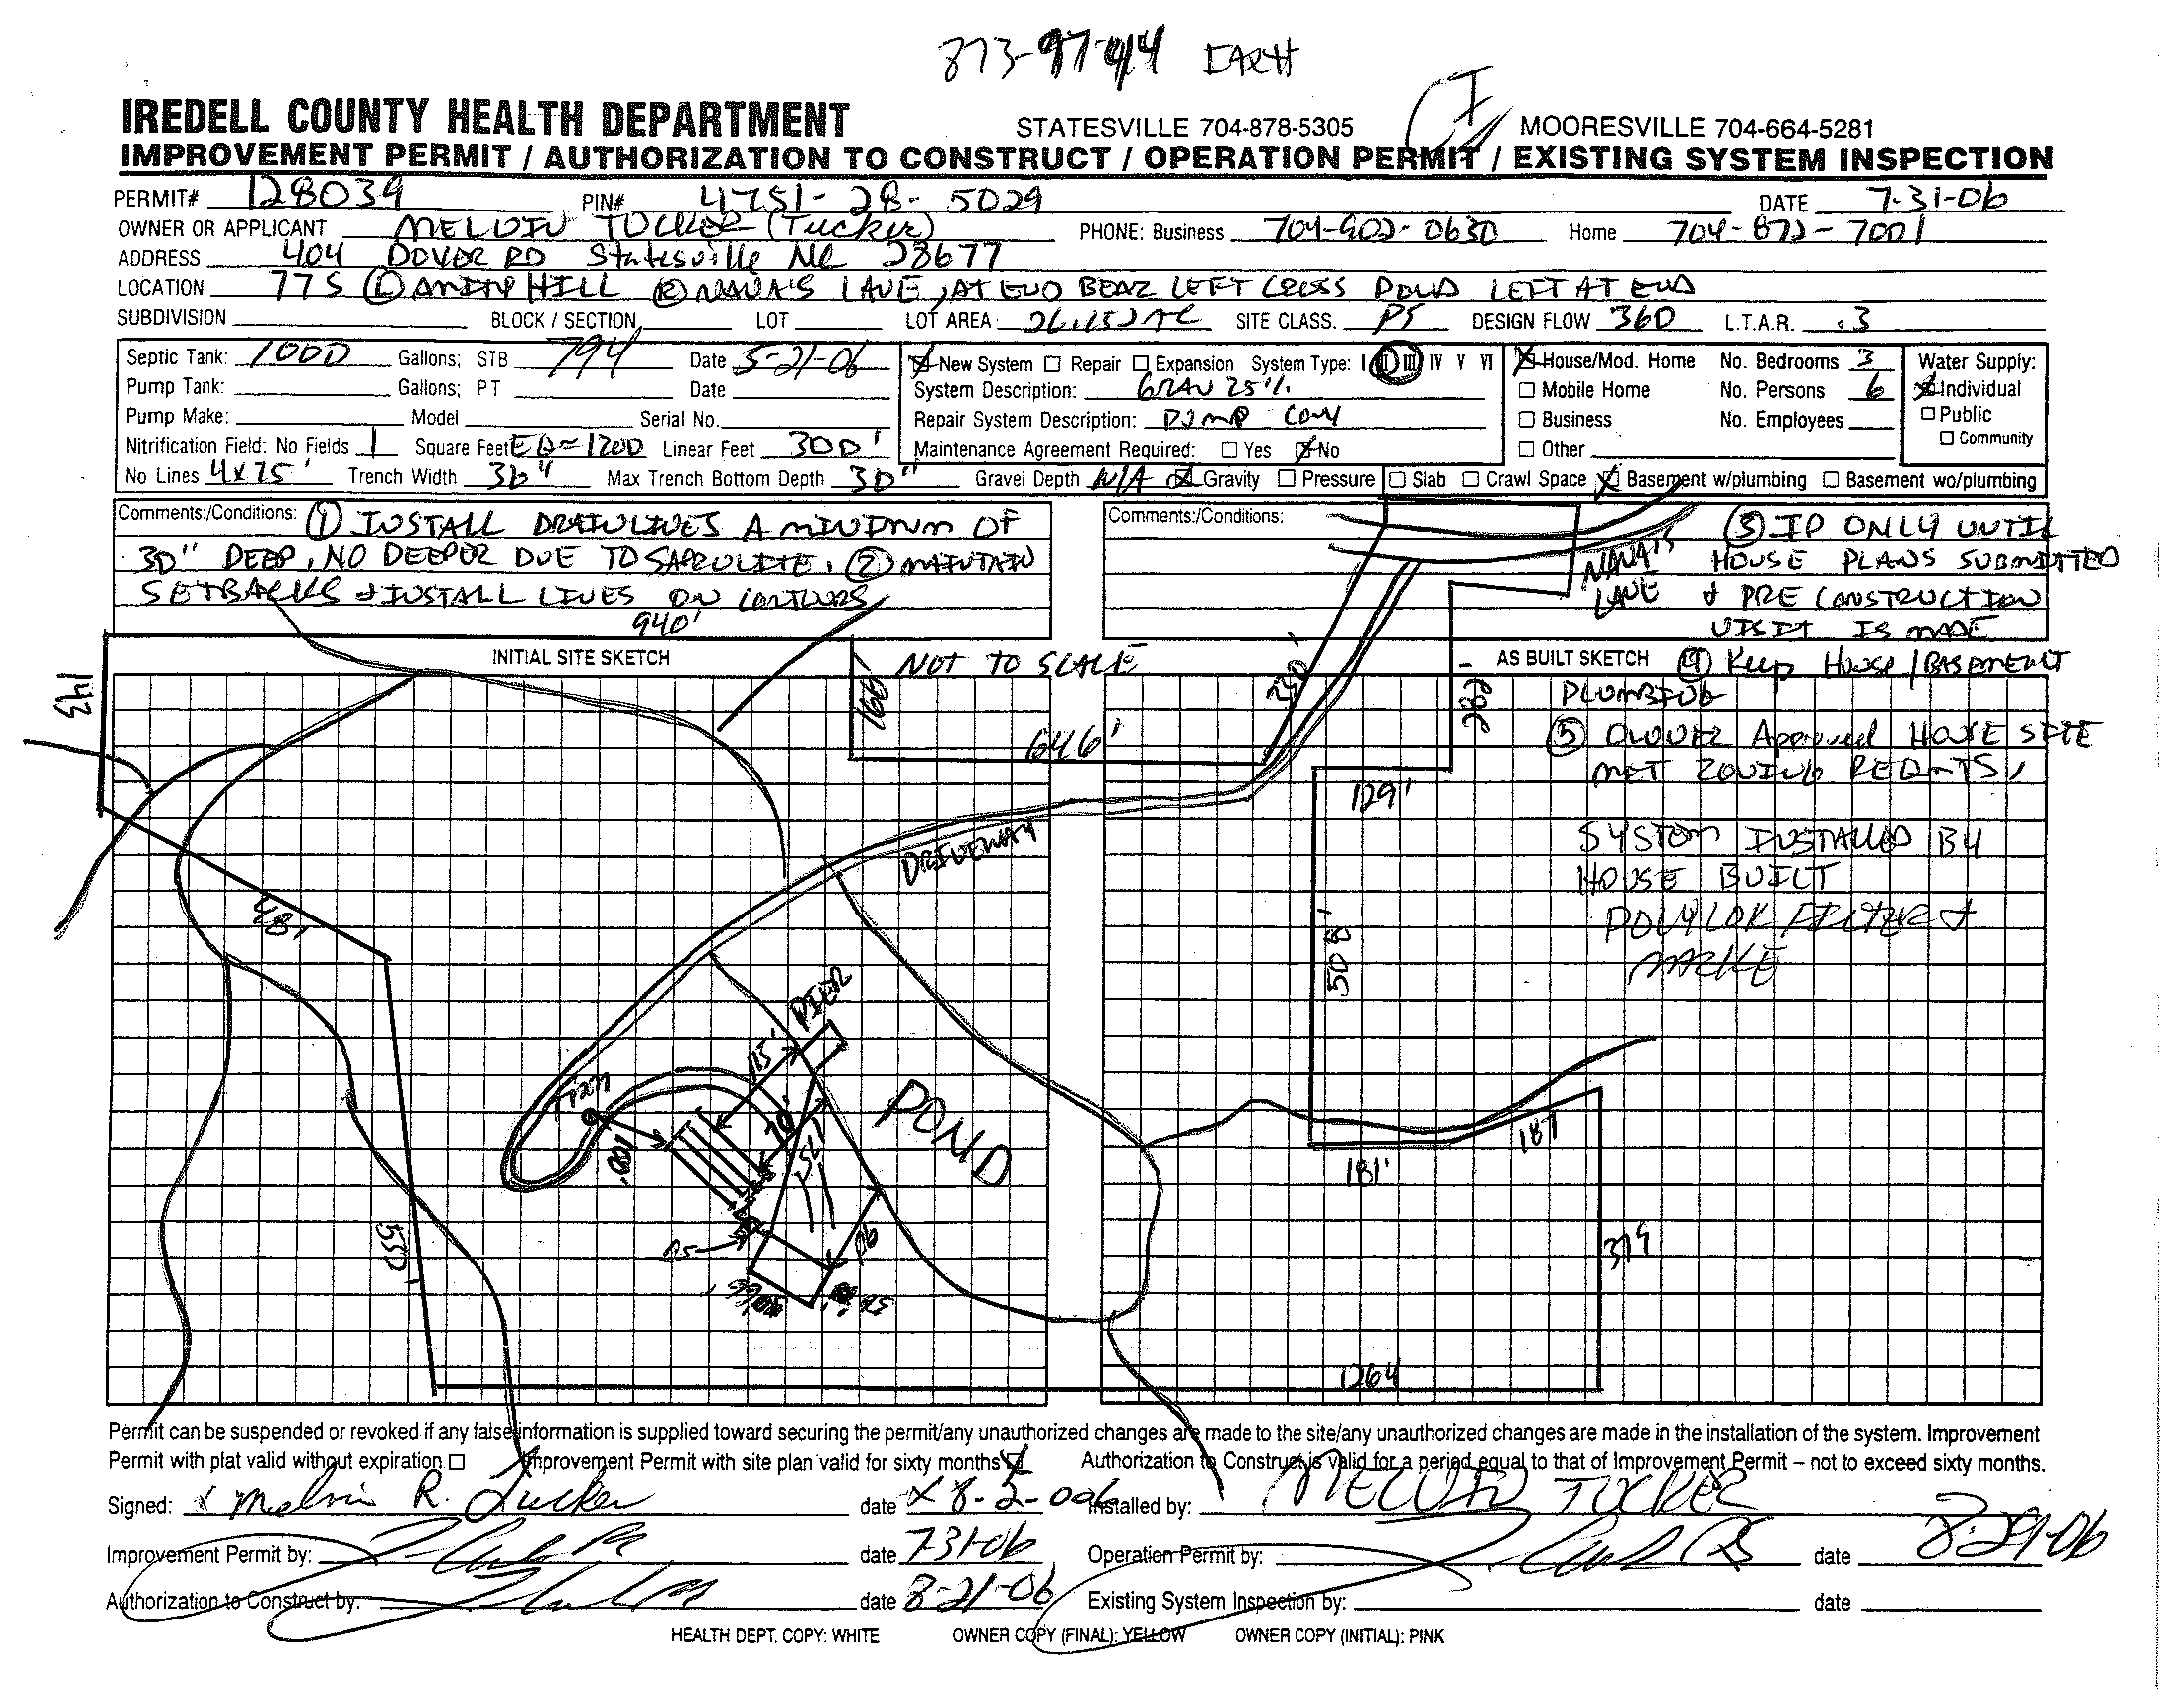 873-9744 EARTH
IREDELL COUNTY HEALTH DEPARTMENT STATESVILLE 704-878-5305 MOORESVILLE 704-664-5281
IMPROVEMENT PERMIT / AUTHORIZATION TO CONSTRUCT / OPERATION PERMIT / EXISTING SYSTEM INSPECTION
PERMIT# 128039 PIN# 4751-28-5029 DATE 7-31-06
OWNER OR APPLICANT MELVIN TUCKER (Tucker) PHONE: Business 704-902-0630 Home 704-872-7001
ADDRESS 404 DOVER RD Statesville NC 28677
LOCATION 77S (L) AMITY HILL (R) NANA'S LANE, AT END BEAR LEFT CROSS POND LEFT AT END
SUBDIVISION BLOCK / SECTION LOT LOT AREA 26.152 AC SITE CLASS. PS DESIGN FLOW 360 L.T.A.R. .3
Septic Tank: 1000 Gallons; STB 794 Date 5-21-06 New System Repair Expansion System Type: I II III IV V VI House/Mod. Home No. Bedrooms 3 Water Supply:
Pump Tank: Gallons; PT Date System Description: GRAV 25% Mobile Home No. Persons 6 Individual
Pump Make: Model Serial No. Repair System Description: PUMP CONV Business No. Employees Public
Nitrification Field: No Fields 1 Square Feet EQ=1200 Linear Feet 300' Maintenance Agreement Required: Yes No Other Community
No Lines 4x75' Trench Width 36" Max Trench Bottom Depth 30" Gravel Depth N/A Gravity Pressure Slab Crawl Space Basement w/plumbing Basement wo/plumbing
Comments:/Conditions: (1) INSTALL DRAINLINES A MINIMUM OF
30" DEEP, NO DEEPER DUE TO SAPROLITE. (2) MAINTAIN
SETBACKS & INSTALL LINES ON CONTOURS
Comments:/Conditions: (3) IP ONLY UNTIL
HOUSE PLANS SUBMITTED
& PRE CONSTRUCTION
VISIT IS MADE
NANA'S LANE
940'
INITIAL SITE SKETCH NOT TO SCALE AS BUILT SKETCH (4) Keep HOUSE/BASEMENT
PLUMBING
(5) OWNER Approved HOUSE SITE
MET ZONING REQMTS,
SYSTEM INSTALLED BY
HOUSE BUILT
POLYLOK FILTER &
143
166'
646'
250'
129'
DRIVEWAY
481'
508'
PIER
115'
WELL
100'
70'
75'
POND
550'
181'
187
319
1264
Permit can be suspended or revoked if any false information is supplied toward securing the permit/any unauthorized changes are made to the site/any unauthorized changes are made in the installation of the system. Improvement
Permit with plat valid without expiration Improvement Permit with site plan valid for sixty months Authorization to Construct is valid for a period equal to that of Improvement Permit – not to exceed sixty months.
Signed: x Melvin R. Tucker date x 8-2-006 Installed by: MELVIN TUCKER
Improvement Permit by: date 7-31-06 Operation Permit by: date 8-29-06
Authorization to Construct by: date 8-21-06 Existing System Inspection by: date
HEALTH DEPT. COPY: WHITE OWNER COPY (FINAL): YELLOW OWNER COPY (INITIAL): PINK